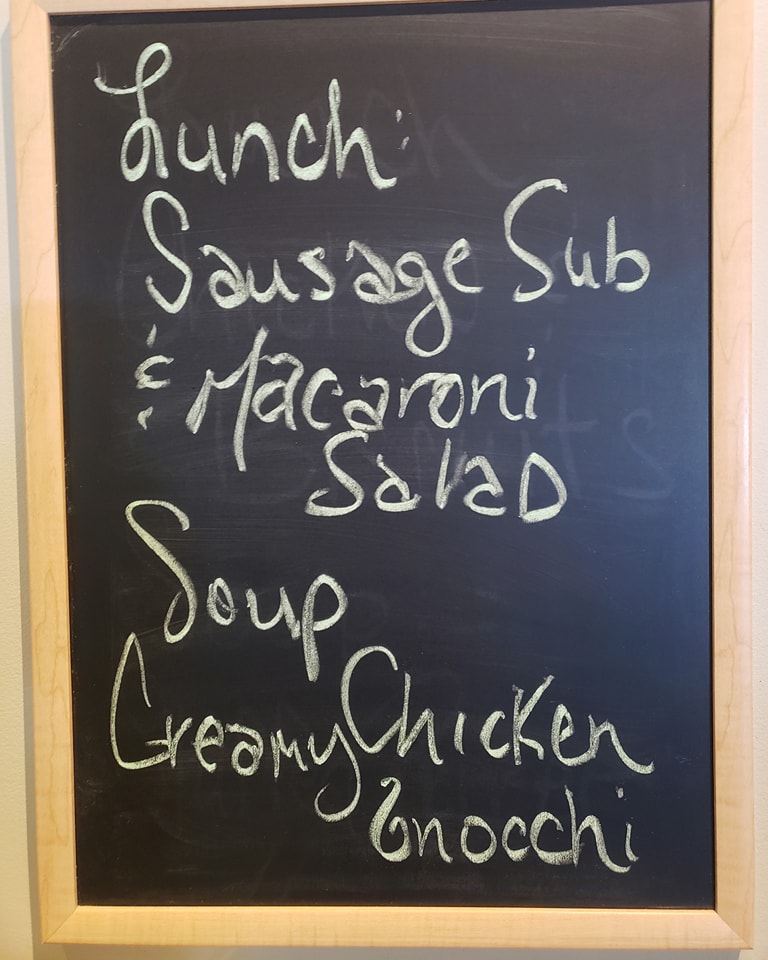 Lunch:
Sausage Sub
& Macaroni
Salad
Soup
Creamy Chicken
Gnocchi